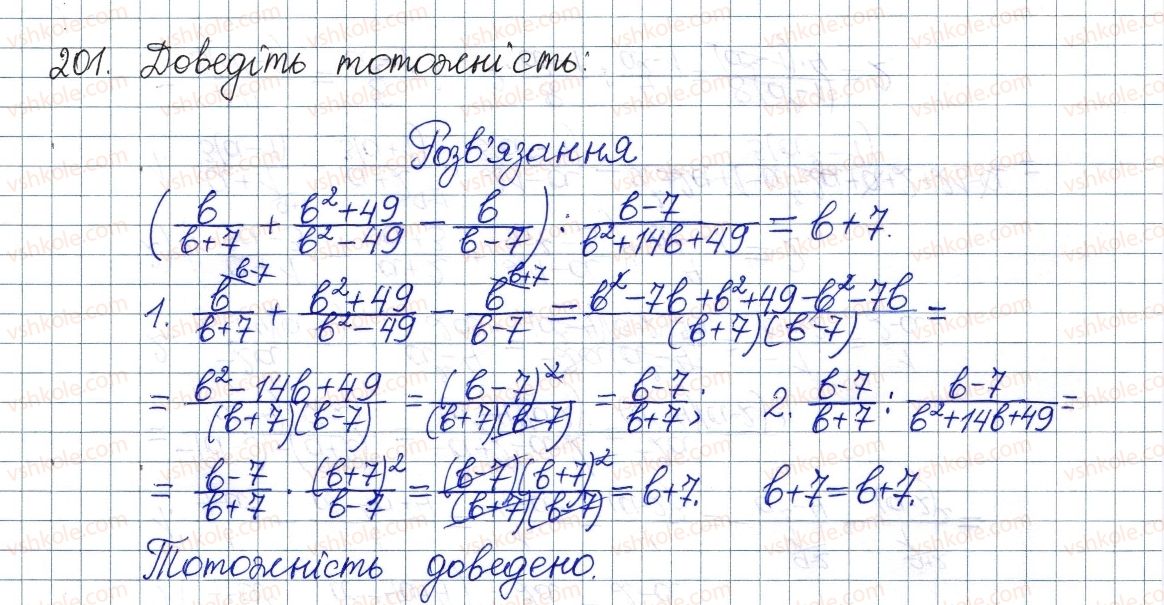 201. Доведіть тотожність:
Розв'язання
(b/(b+7) + (b²+49)/(b²-49) - b/(b-7)) : (b-7)/(b²+14b+49) = b+7.
1. b/(b+7) ^(b-7) + (b²+49)/(b²-49) - b/(b-7) ^(b+7) = (b²-7b+b²+49-b²-7b)/((b+7)(b-7)) =
= (b²-14b+49)/((b+7)(b-7)) = (b-7)²/((b+7)(b-7)) = (b-7)/(b+7); 2. (b-7)/(b+7) : (b-7)/(b²+14b+49) =
= (b-7)/(b+7) · (b+7)²/(b-7) = ((b-7)(b+7)²)/((b+7)(b-7)) = b+7. b+7=b+7.
Тотожність доведено.